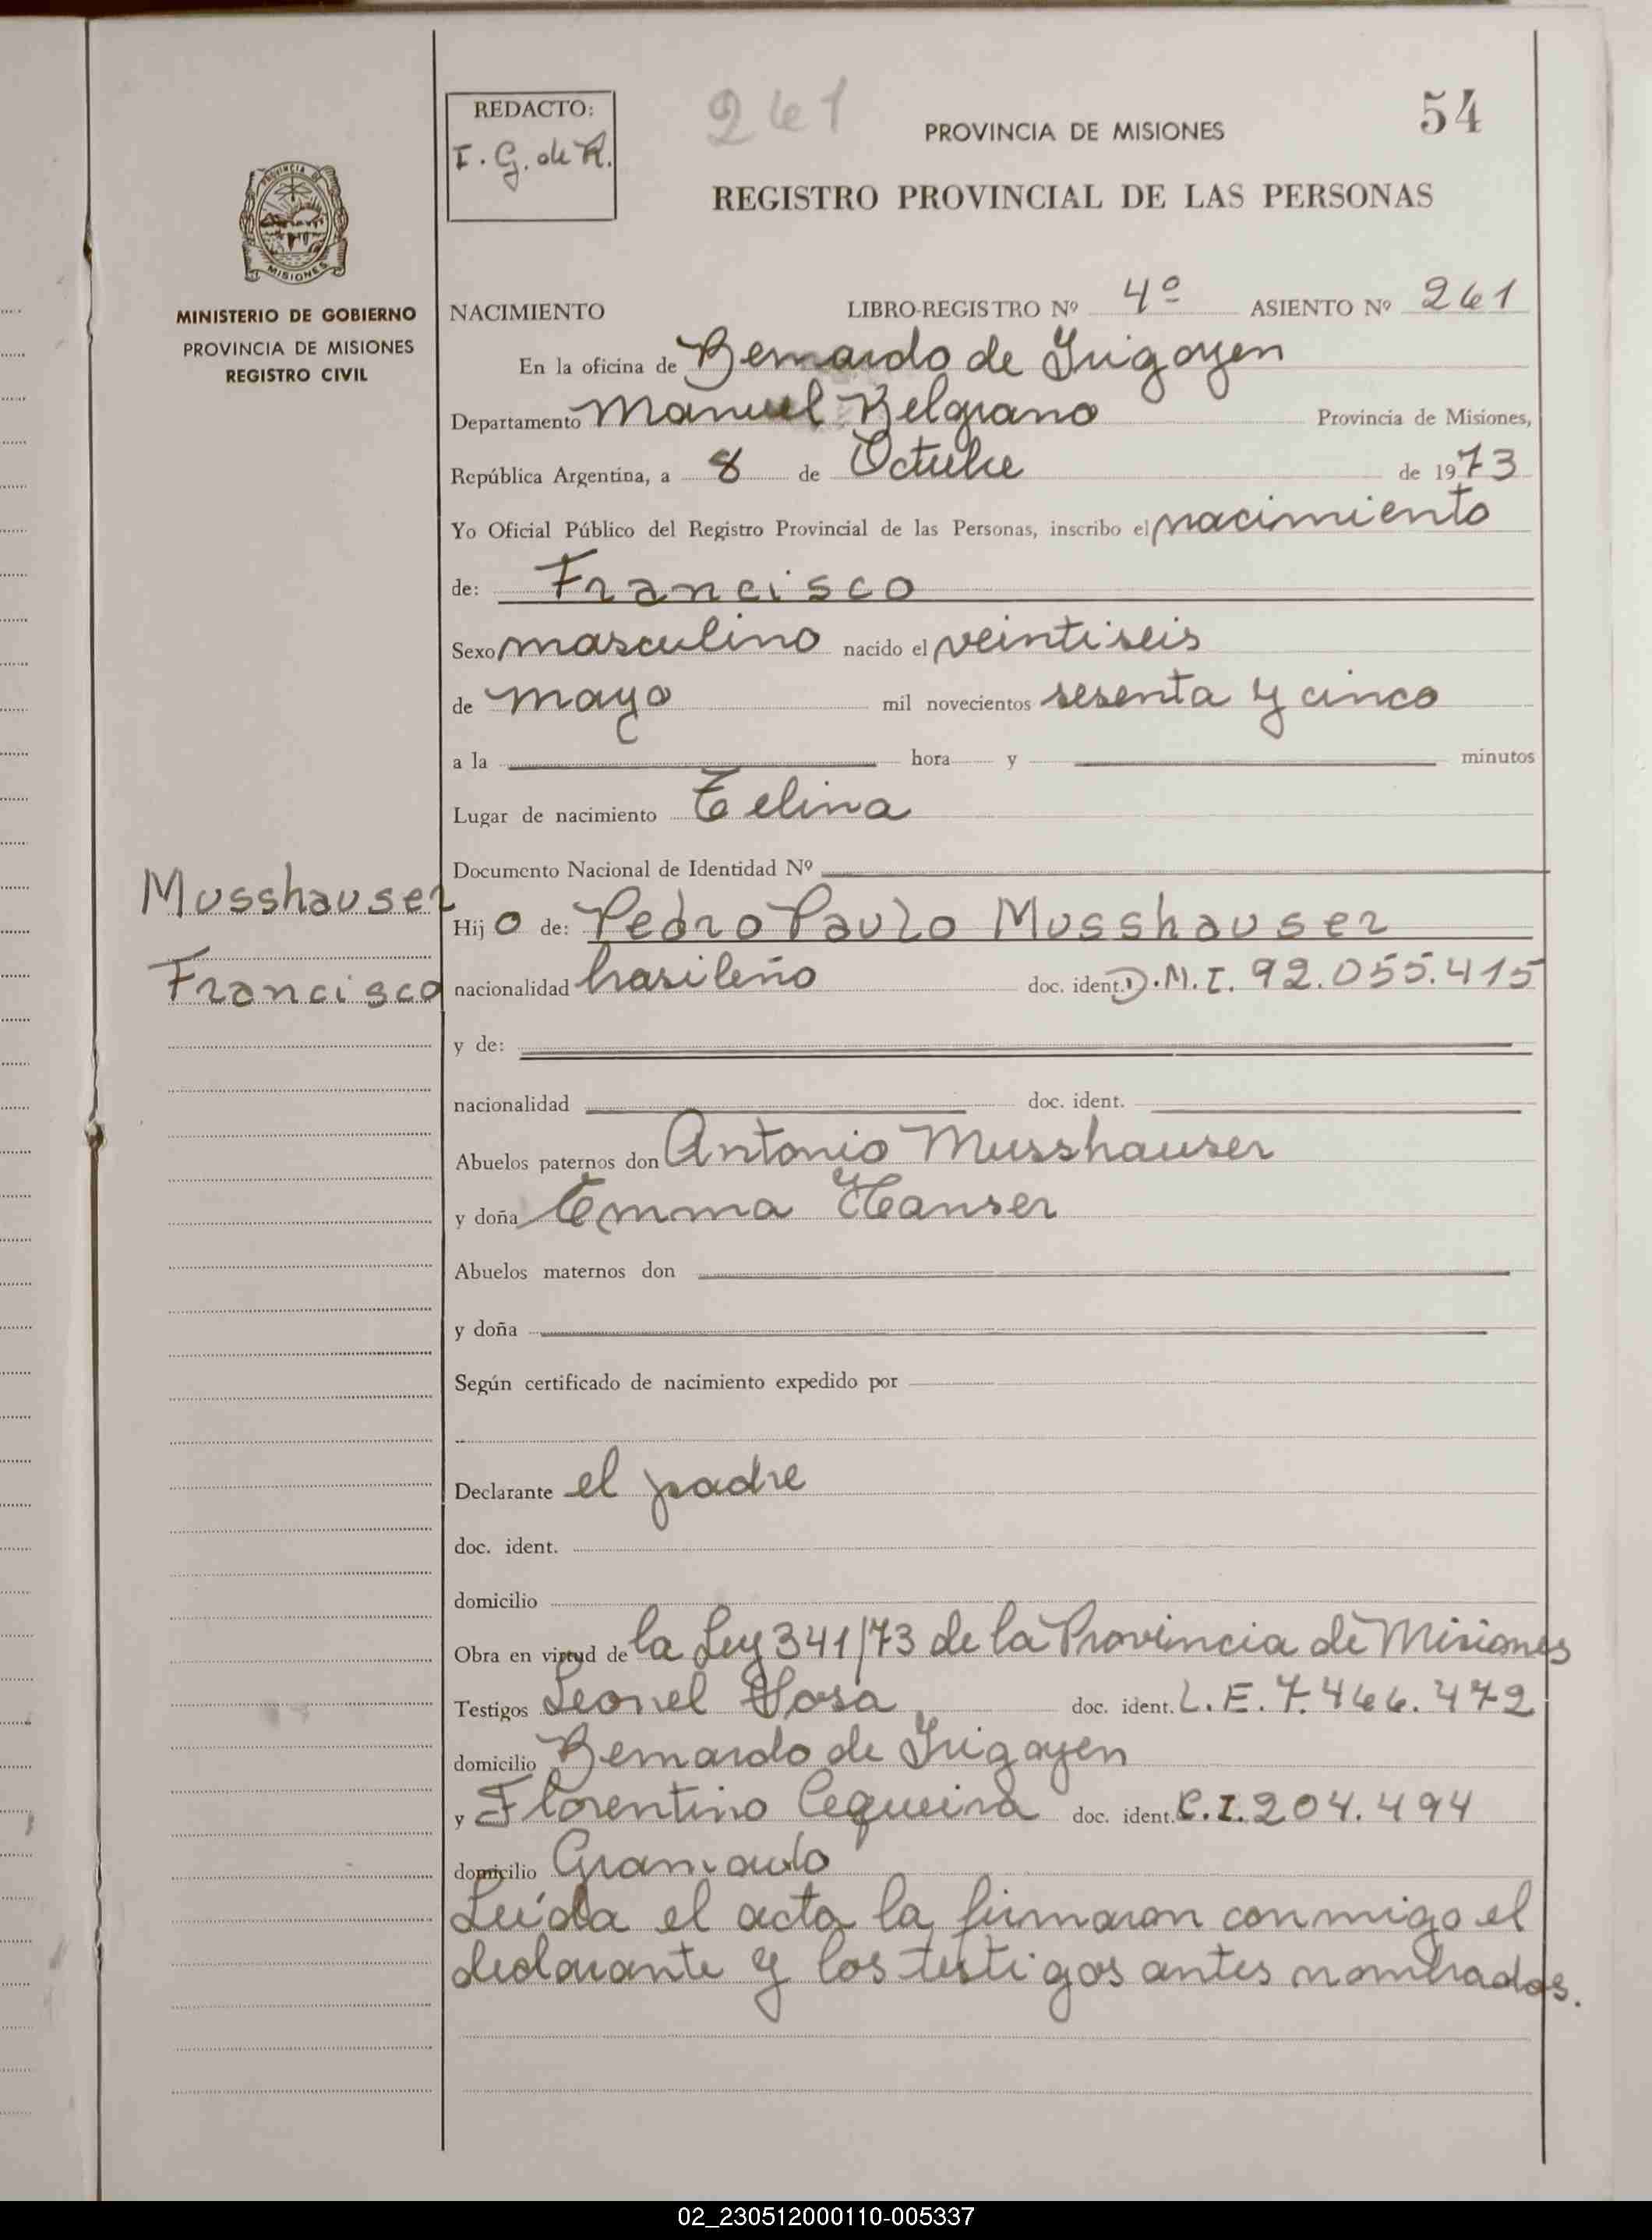 REDACTO:
I. G. de R.
261
54
PROVINCIA DE MISIONES
REGISTRO PROVINCIAL DE LAS PERSONAS
PROVINCIA DE
MISIONES
MINISTERIO DE GOBIERNO
PROVINCIA DE MISIONES
REGISTRO CIVIL
NACIMIENTO LIBRO-REGISTRO Nº 4º ASIENTO Nº 261
En la oficina de Bernardo de Irigoyen
Departamento Manuel Belgrano Provincia de Misiones,
República Argentina, a 8 de Octubre de 1973
Yo Oficial Público del Registro Provincial de las Personas, inscribo el nacimiento
de: Francisco
Sexo masculino nacido el veintiseis
de mayo mil novecientos sesenta y cinco
a la hora y minutos
Lugar de nacimiento
Documento Nacional de Identidad Nº
Musshauser
Francisco
Hijo de: Pedro Paulo Musshauser
nacionalidad brasileño doc. ident. D.M.I. 92.055.415
y de:
nacionalidad doc. ident.
Abuelos paternos don Antonio Musshauser
y doña Emma Hanser
Abuelos maternos don
y doña
Según certificado de nacimiento expedido por
Declarante el padre
doc. ident.
domicilio
Obra en virtud de la Ley 341/73 de la Provincia de Misiones
Testigos Leonel Sosa doc. ident. L.E. 7.466.472
domicilio Bernardo de Irigoyen
y Florentino Cequeira doc. ident. C.I. 204.494
domicilio Gramado
Leída el acta la firmaron conmigo el
declarante y los testigos antes nombrados.
02_230512000110-005337